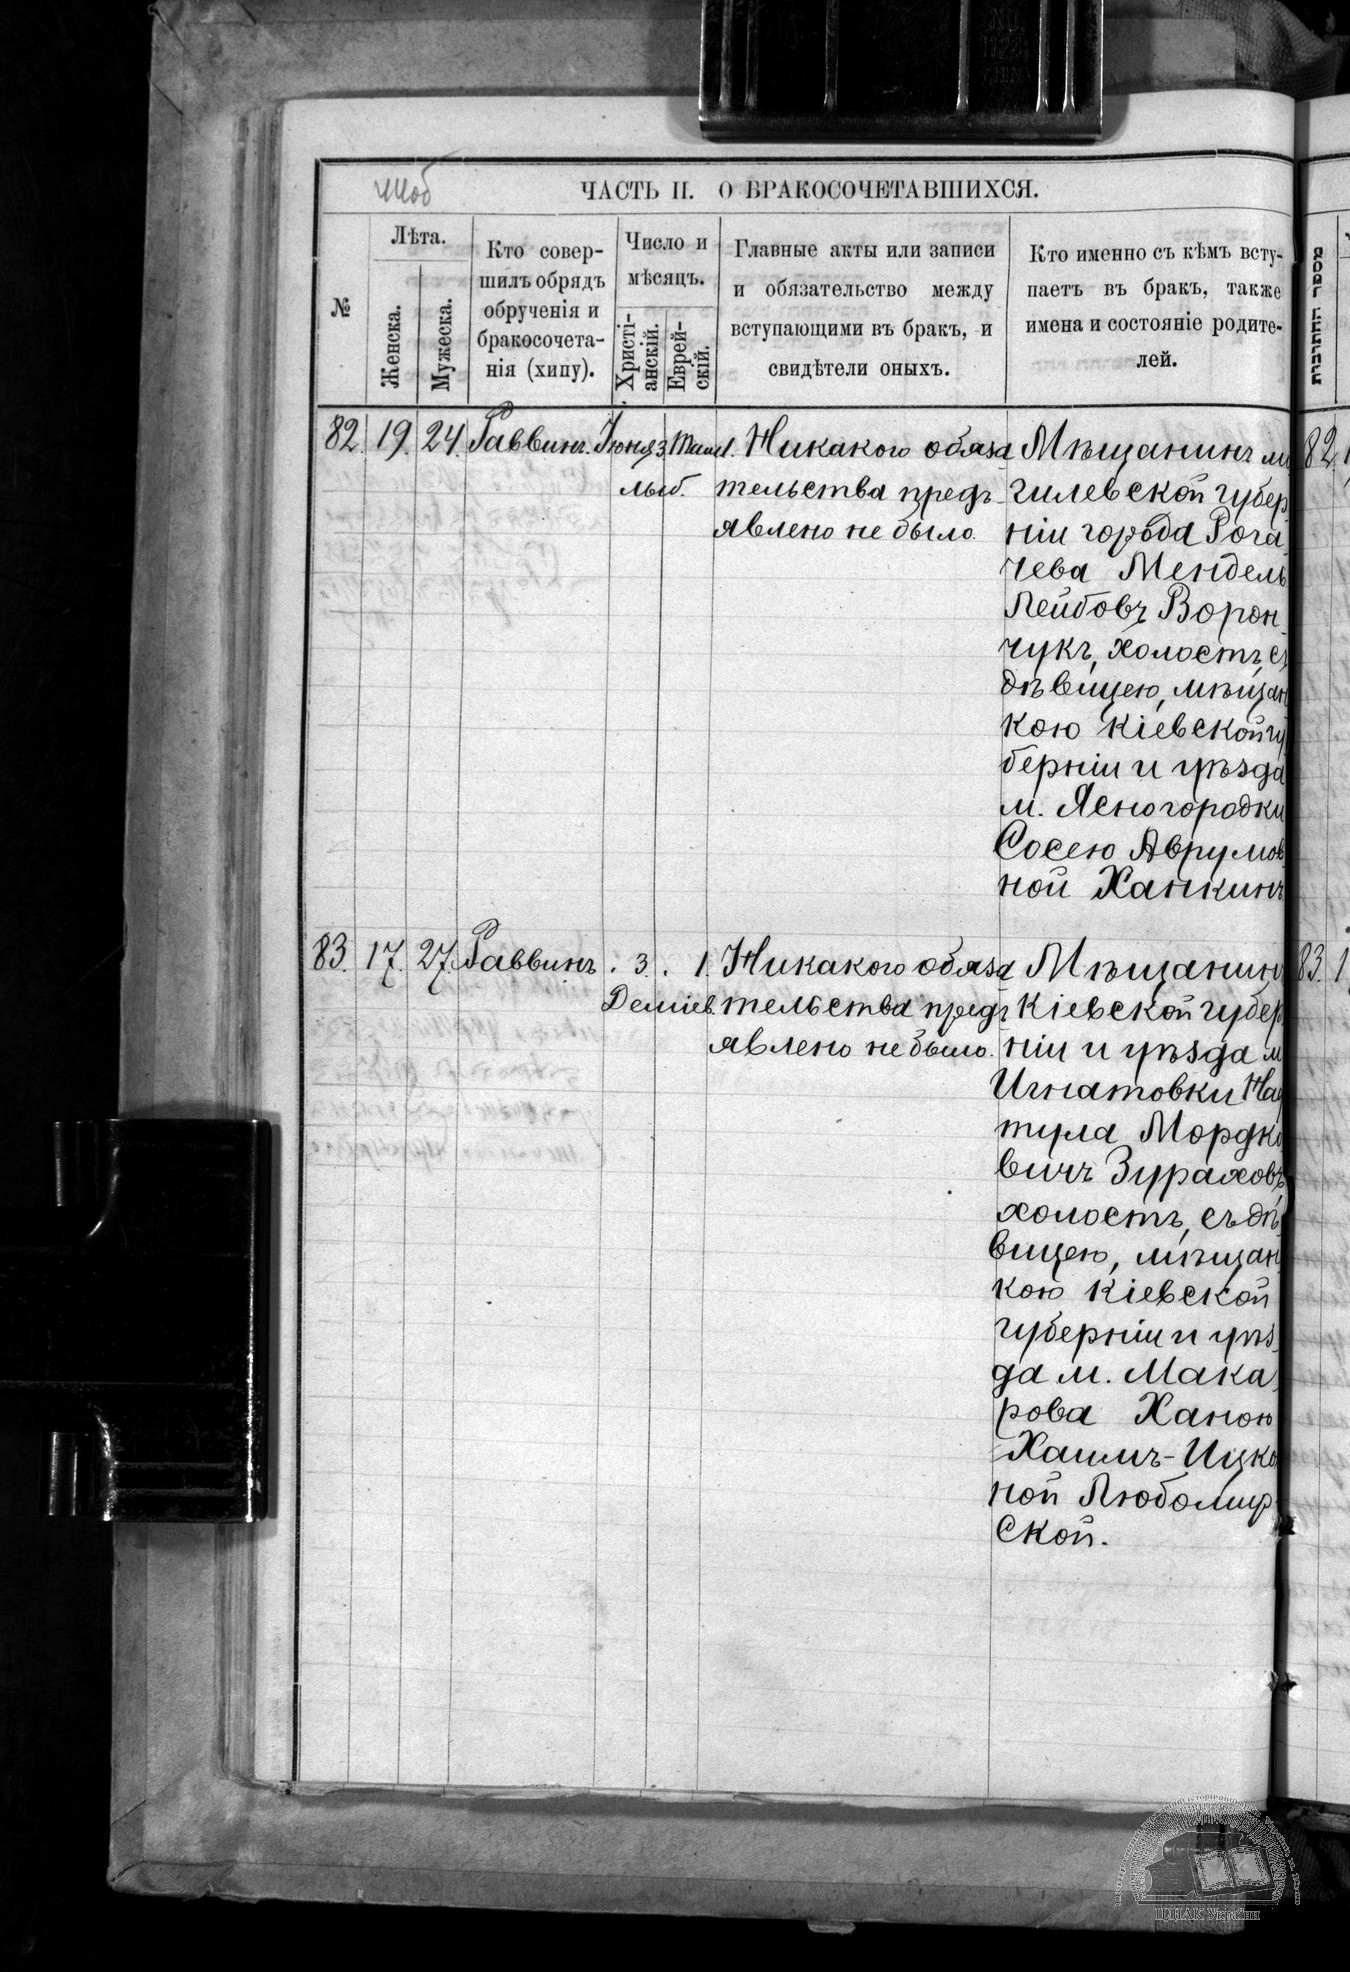 ЧАСТЬ II. О БРАКОСОЧЕТАВШИХСЯ.
№
Лѣта.
Женска.
Мужеска.
Кто совер-
шилъ обрядъ
обрученія и
бракосочета-
нія (хипу).
Число и
мѣсяцъ.
Христі-
анскій.
Еврей-
скій.
Главные акты или записи
и обязательство между
вступающими въ бракъ, и
свидѣтели оныхъ.
Кто именно съ кѣмъ всту-
паетъ въ бракъ, также
имена и состояніе родите-
лей.
82. 19. 24. Раввинъ. Іюня 3. 1.
Никакого обяза
тельства предъ
явлено не было.
Мѣщанинъ мо
гилевской губер
ніи города Рога
чева Мендель
Лейбовъ Ворон
чукъ, холостъ, съ
дѣвицею, мѣщан
кою Кіевской гу
берніи и уѣзда
м. Ясногородки
Сосею Аврумов
ной Ханкинъ
83. 17. 27. Раввинъ. 3. 1.
Деміев.
Никакого обяза
тельства предъ
явлено не было.
Мѣщанинъ
Кіевской губер
ніи и уѣзда м
Игнатовки Наф
тула Мордко
вичъ Зураховъ
холостъ, съ дѣ
вицею, мѣщан
кою Кіевской
губерніи и уѣз
да м. Мака
рова Ханою
Хаимъ-Ицко
ной Любомир
ской.
82
83. 1
ЦДІАК України